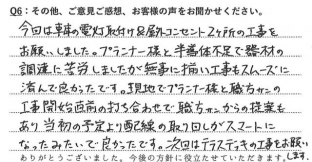 Q6:その他、ご意見ご感想、お客様の声をお聞かせください。
今回は車庫の電灯取付け&屋外コンセント2ヶ所の工事を
お願いしました。プランナー様と半導体不足で器材の
調達に苦労しましたが無事に揃い工事もスムーズに
済んで良かったです。現地でプランナー様と職ちゃんの
工事開始直前の打ち合わせで職ちゃんからの提案も
あり当初の予定より配線の取り回しがスマートに
なったみたいで良かったです。次回はテラスデッキの工事をお願い
します。
ありがとうございました。今後の方針に役立たせていただきます。